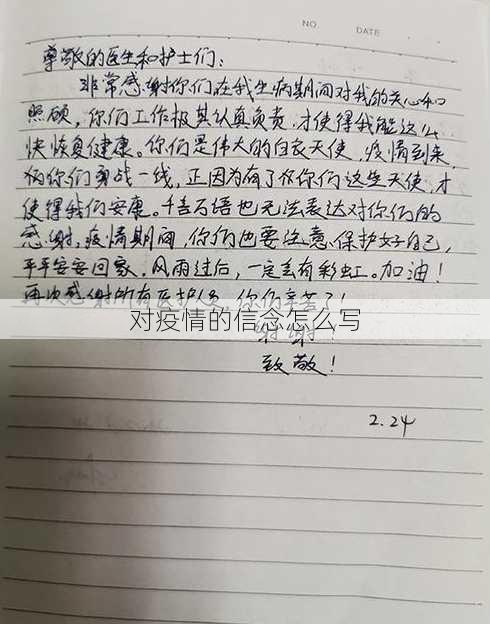 NO.
DATE
尊敬的医生和护士们：
非常感谢你们在我生病期间对我的关心和
照顾，你们工作极其认真负责，才使得我能这么
快恢复健康。你们是伟大的白衣天使，疫情到来，
你们勇战一线，正因为有了你们这些天使，才
使得我们安康。千言万语也无法表达对你们的
感谢，疫情期间，你们也要注意保护好自己，
平平安安回家，风雨过后，一定会有彩虹。加油！
再次感谢所有医护人员，你们辛苦了！
对疫情的信念怎么写
谢谢！
致敬！
2.24